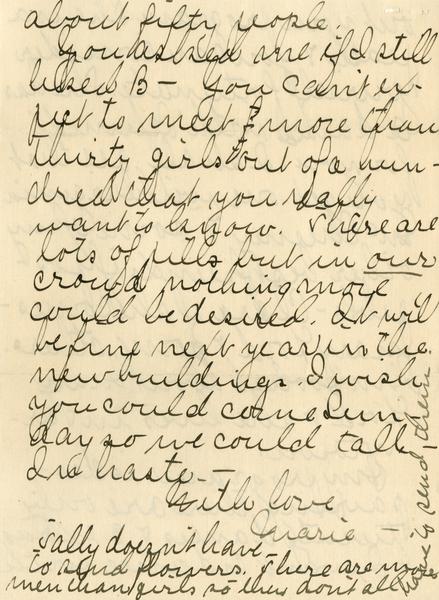 about fifty people.
You asked me if I still
liked B— You can't ex-
pect to meet & more than
thirty girls out of a hun-
dred that you really
want to know. There are
lots of pills but in our
crowd nothing more
could be desired. It will
be fine next year in the
new buildings. I wish
you could come Sun
day so we could talk
In haste —
With love
Marie —
Sally doesn't have
to send flowers. There are more
men than girls so they don't all
have to send them